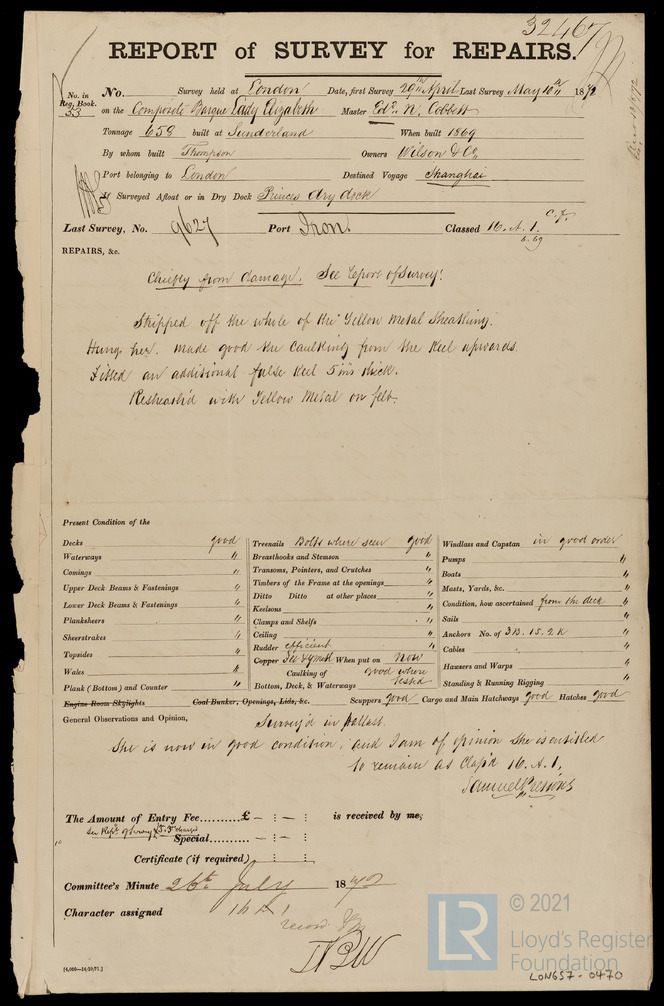 32467
REPORT of SURVEY for REPAIRS.
No. in Reg. Book. 53
No. Survey held at London Date, first Survey 29th April Last Survey May 10th 1872
on the Composite Barque Lady Elizabeth Master Edwd. N. Cobbett
Tonnage 658 built at Sunderland When built 1869
By whom built Thompson Owners Wilson & Co.
Port belonging to London Destined Voyage Shanghai
If Surveyed Afloat or in Dry Dock Princes dry dock
Last Survey, No. 9627 Port Iron. Classed 16. A. 1. C.F.
6.69
REPAIRS, &c.
Chiefly from damage. See Report of Survey.
Stripped off the whole of the Yellow Metal Sheathing.
Hung her. made good the Caulking from the Keel upwards.
Fitted an additional false Keel 5 ins thick.
Resheath'd with Yellow Metal on felt.
Present Condition of the
Decks good Treenails Bolts where seen good Windlass and Capstan in good order
Waterways " Breasthooks and Stemson " Pumps "
Comings " Transoms, Pointers, and Crutches " Boats "
Upper Deck Beams & Fastenings " Timbers of the Frame at the openings " Masts, Yards, &c. "
Lower Deck Beams & Fastenings " Ditto Ditto at other places " Condition, how ascertained from the deck "
Planksheers " Keelsons " Sails "
Sheerstrakes " Clamps and Shelfs " Anchors No. of 3B. 1S. 2K "
Topsides " Ceiling " Cables "
Wales " Rudder efficient Hawsers and Warps "
Plank (Bottom) and Counter " Copper When put on Now Standing & Running Rigging "
Caulking of Bottom, Deck, & Waterways good where tested
Engine Room Skylights Coal Bunker, Openings, Lids, &c. Scuppers good Cargo and Main Hatchways good Hatches good
General Observations and Opinion, Survey'd in ballast.
She is now in good condition, and I am of opinion she is entitled
to remain as Class'd 16. A. 1,
The Amount of Entry Fee..........£ — : — : is received by me,
Special.......... — : — :
Certificate (if required) : :
Committee's Minute 26th July 1872
Character assigned 16 A 1
[4,000—14/10/71.]
LR
© 2021
Lloyd's Register
Foundation
LON657-0470